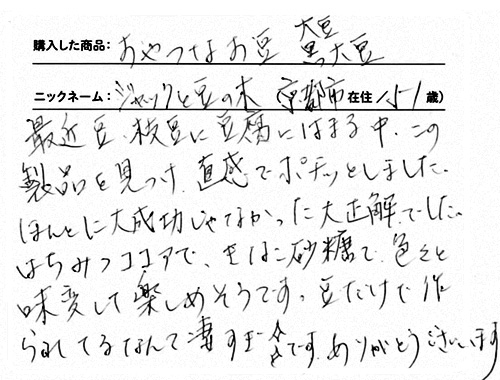 購入した商品: おやつなお豆 大豆 黒大豆
ニックネーム: ジャックと豆の木 京都市 在住 (51歳)
最近豆、枝豆に豆腐にはまる中、この
製品を見つけ、直感でポチッとしました。
ほんとに大成功じゃなかった大正解でした。
はちみつココアで、きはに砂糖で、色々と
味変して楽しめそうです。豆だけで作
られてるなんて凄すぎです。ありがとうございます